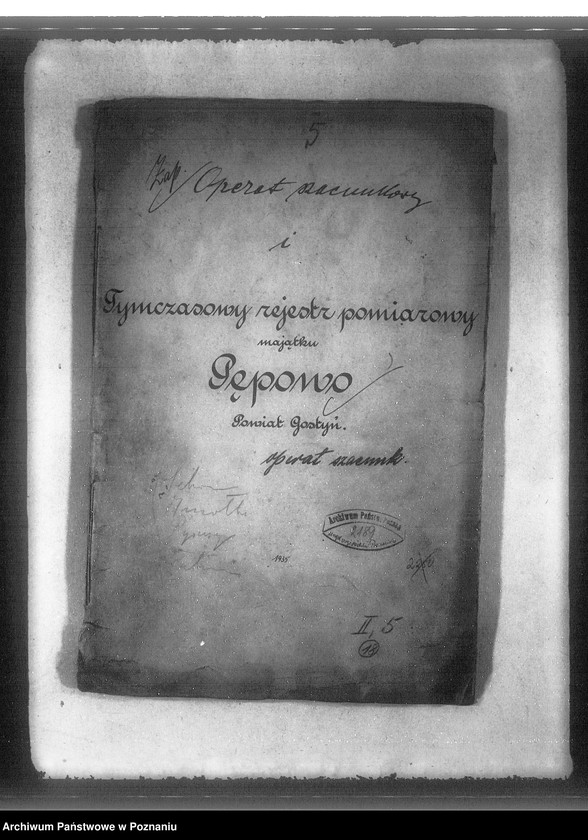 5
Operat szacunkowy
i
Tymczasowy rejestr pomiarowy
majątku
Pępowo
Powiat Gostyń.
operat szacunk.
Archiwum Państw. Poznań
2189
1935
II, 5
18
Archiwum Państwowe w Poznaniu